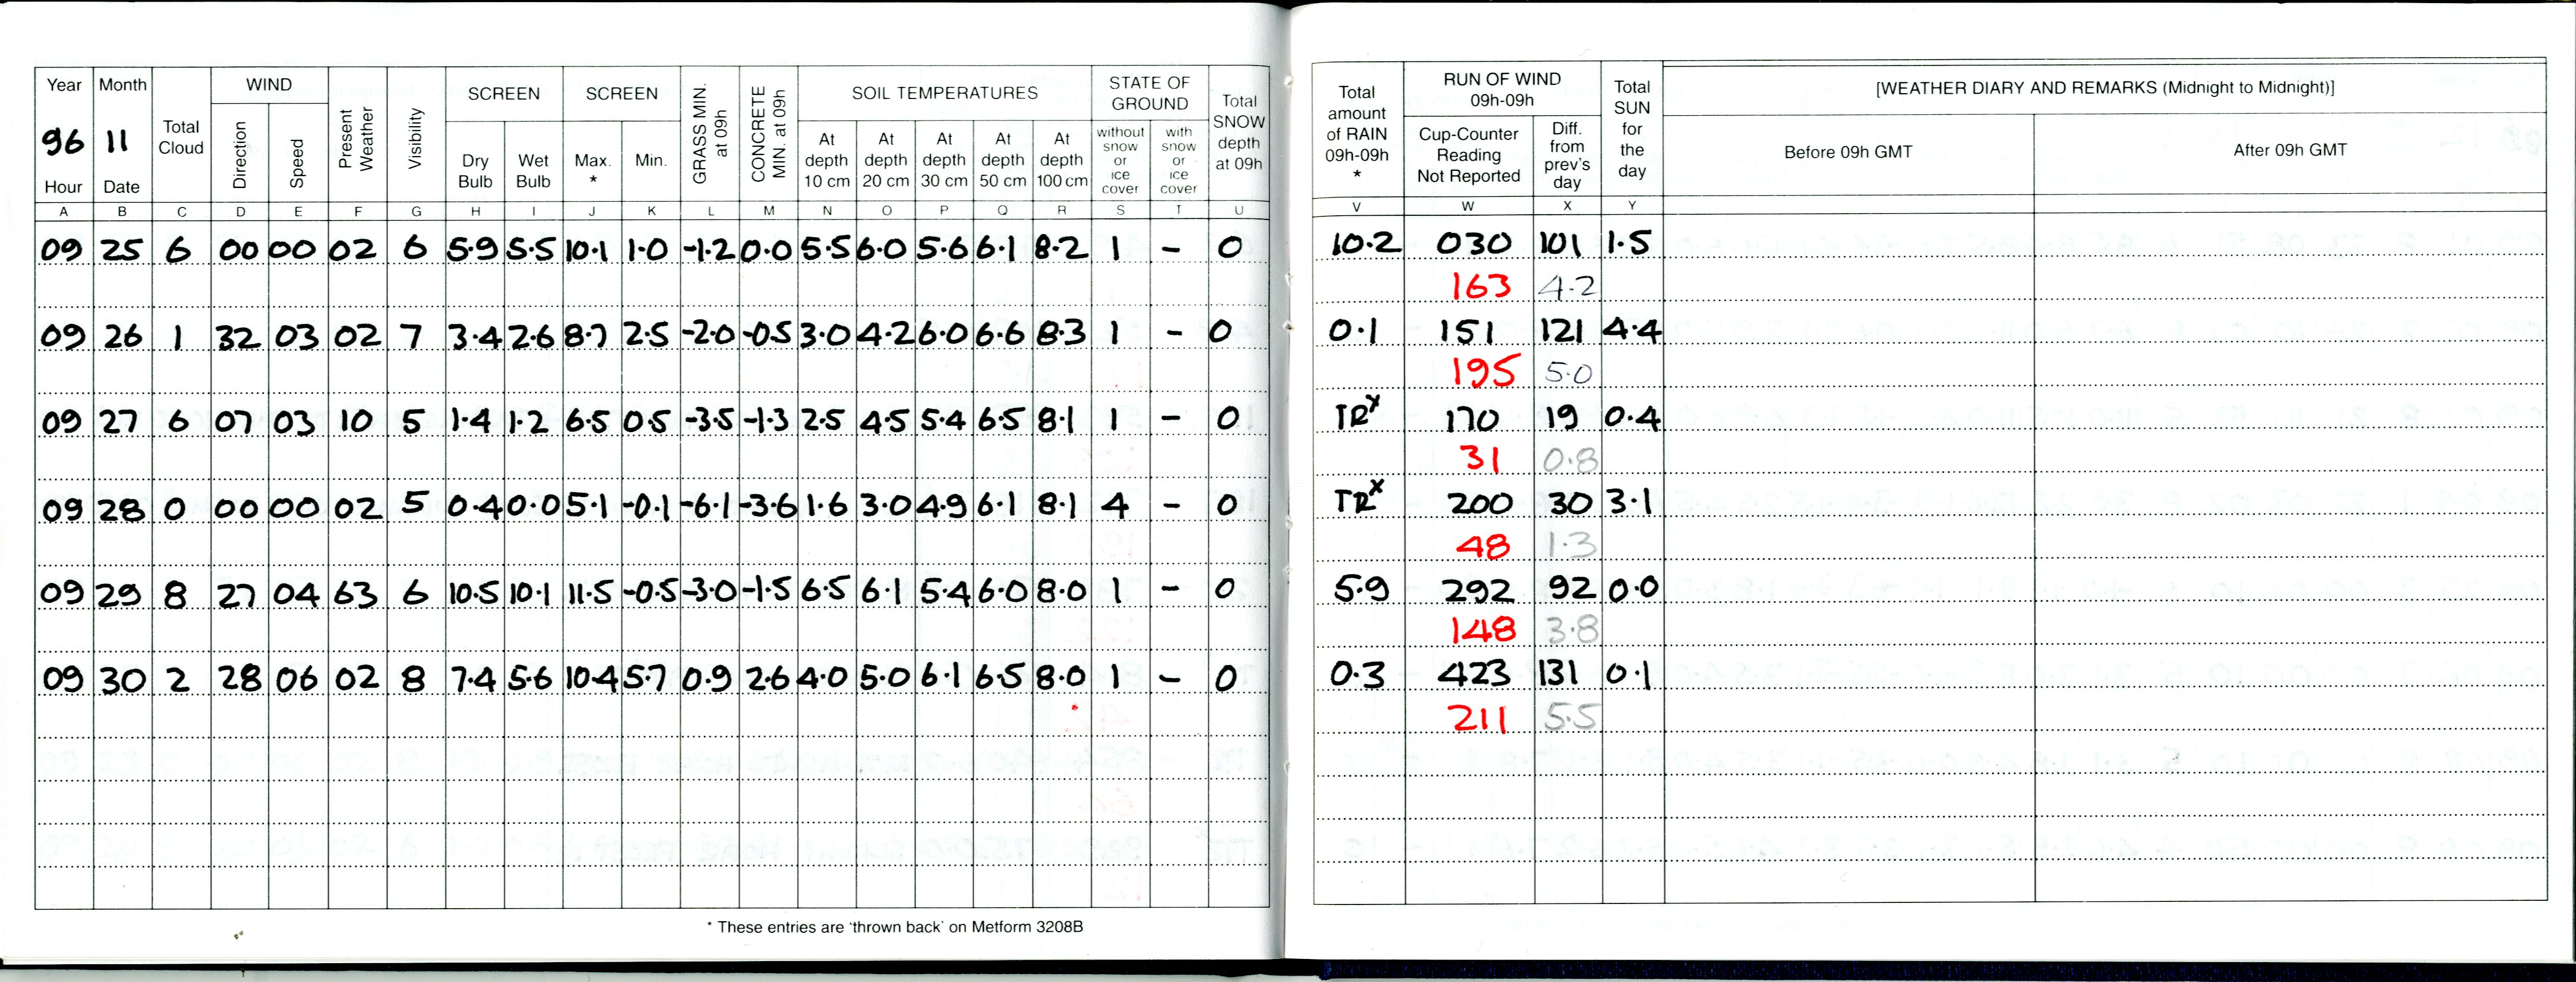 Year Month Total Cloud WIND Present Weather Visibility SCREEN SCREEN GRASS MIN. at 09h CONCRETE MIN. at 09h SOIL TEMPERATURES STATE OF GROUND Total SNOW depth at 09h
96 11 Direction Speed Dry Bulb Wet Bulb Max. * Min. At depth 10 cm At depth 20 cm At depth 30 cm At depth 50 cm At depth 100 cm without snow or ice cover with snow or ice cover
Hour Date
A B C D E F G H I J K L M N O P Q R S T U
09 25 6 00 00 02 6 5.9 5.5 10.1 1.0 -1.2 0.0 5.5 6.0 5.6 6.1 8.2 1 - 0
09 26 1 32 03 02 7 3.4 2.6 8.7 2.5 -2.0 -0.5 3.0 4.2 6.0 6.6 8.3 1 - 0
09 27 6 07 03 10 5 1.4 1.2 6.5 0.5 -3.5 -1.3 2.5 4.5 5.4 6.5 8.1 1 - 0
09 28 0 00 00 02 5 0.4 0.0 5.1 -0.1 -6.1 -3.6 1.6 3.0 4.9 6.1 8.1 4 - 0
09 29 8 27 04 63 6 10.5 10.1 11.5 -0.5 -3.0 -1.5 6.5 6.1 5.4 6.0 8.0 1 - 0
09 30 2 28 06 02 8 7.4 5.6 10.4 5.7 0.9 2.6 4.0 5.0 6.1 6.5 8.0 1 - 0
* These entries are 'thrown back' on Metform 3208B
Total amount of RAIN 09h-09h * RUN OF WIND 09h-09h Total SUN for the day [WEATHER DIARY AND REMARKS (Midnight to Midnight)]
Cup-Counter Reading Not Reported Diff. from prev's day Before 09h GMT After 09h GMT
V W X Y
10.2 030 101 1.5
163 4.2
0.1 151 121 4.4
195 5.0
TRx 170 19 0.4
31 0.8
TRx 200 30 3.1
48 1.3
5.9 292 92 0.0
148 3.8
0.3 423 131 0.1
211 5.5